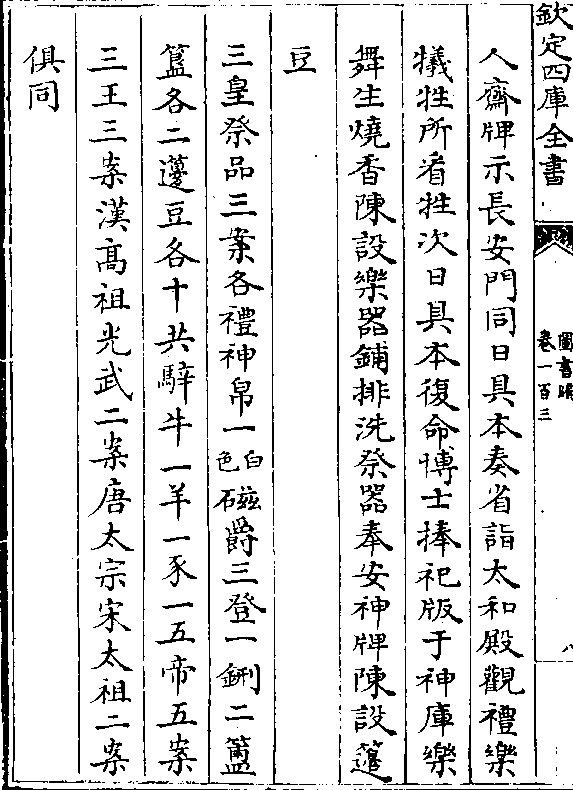 欽定四庫全書
圖書編
卷一百三
八
人齋牌示長安門同日具本奏省詣太和殿觀禮樂
犧牲所看牲次日具本復命博士捧祀版于神庫樂
舞生燒香陳設樂器鋪排洗祭器奉安神牌陳設籩
豆
三皇祭品三案各禮神帛一白色磁爵三登一鉶二簠
簋各二籩豆各十共騂牛一羊一豕一五帝五案
三王三案漢髙祖光武二案唐太宗宋太祖二案
俱同